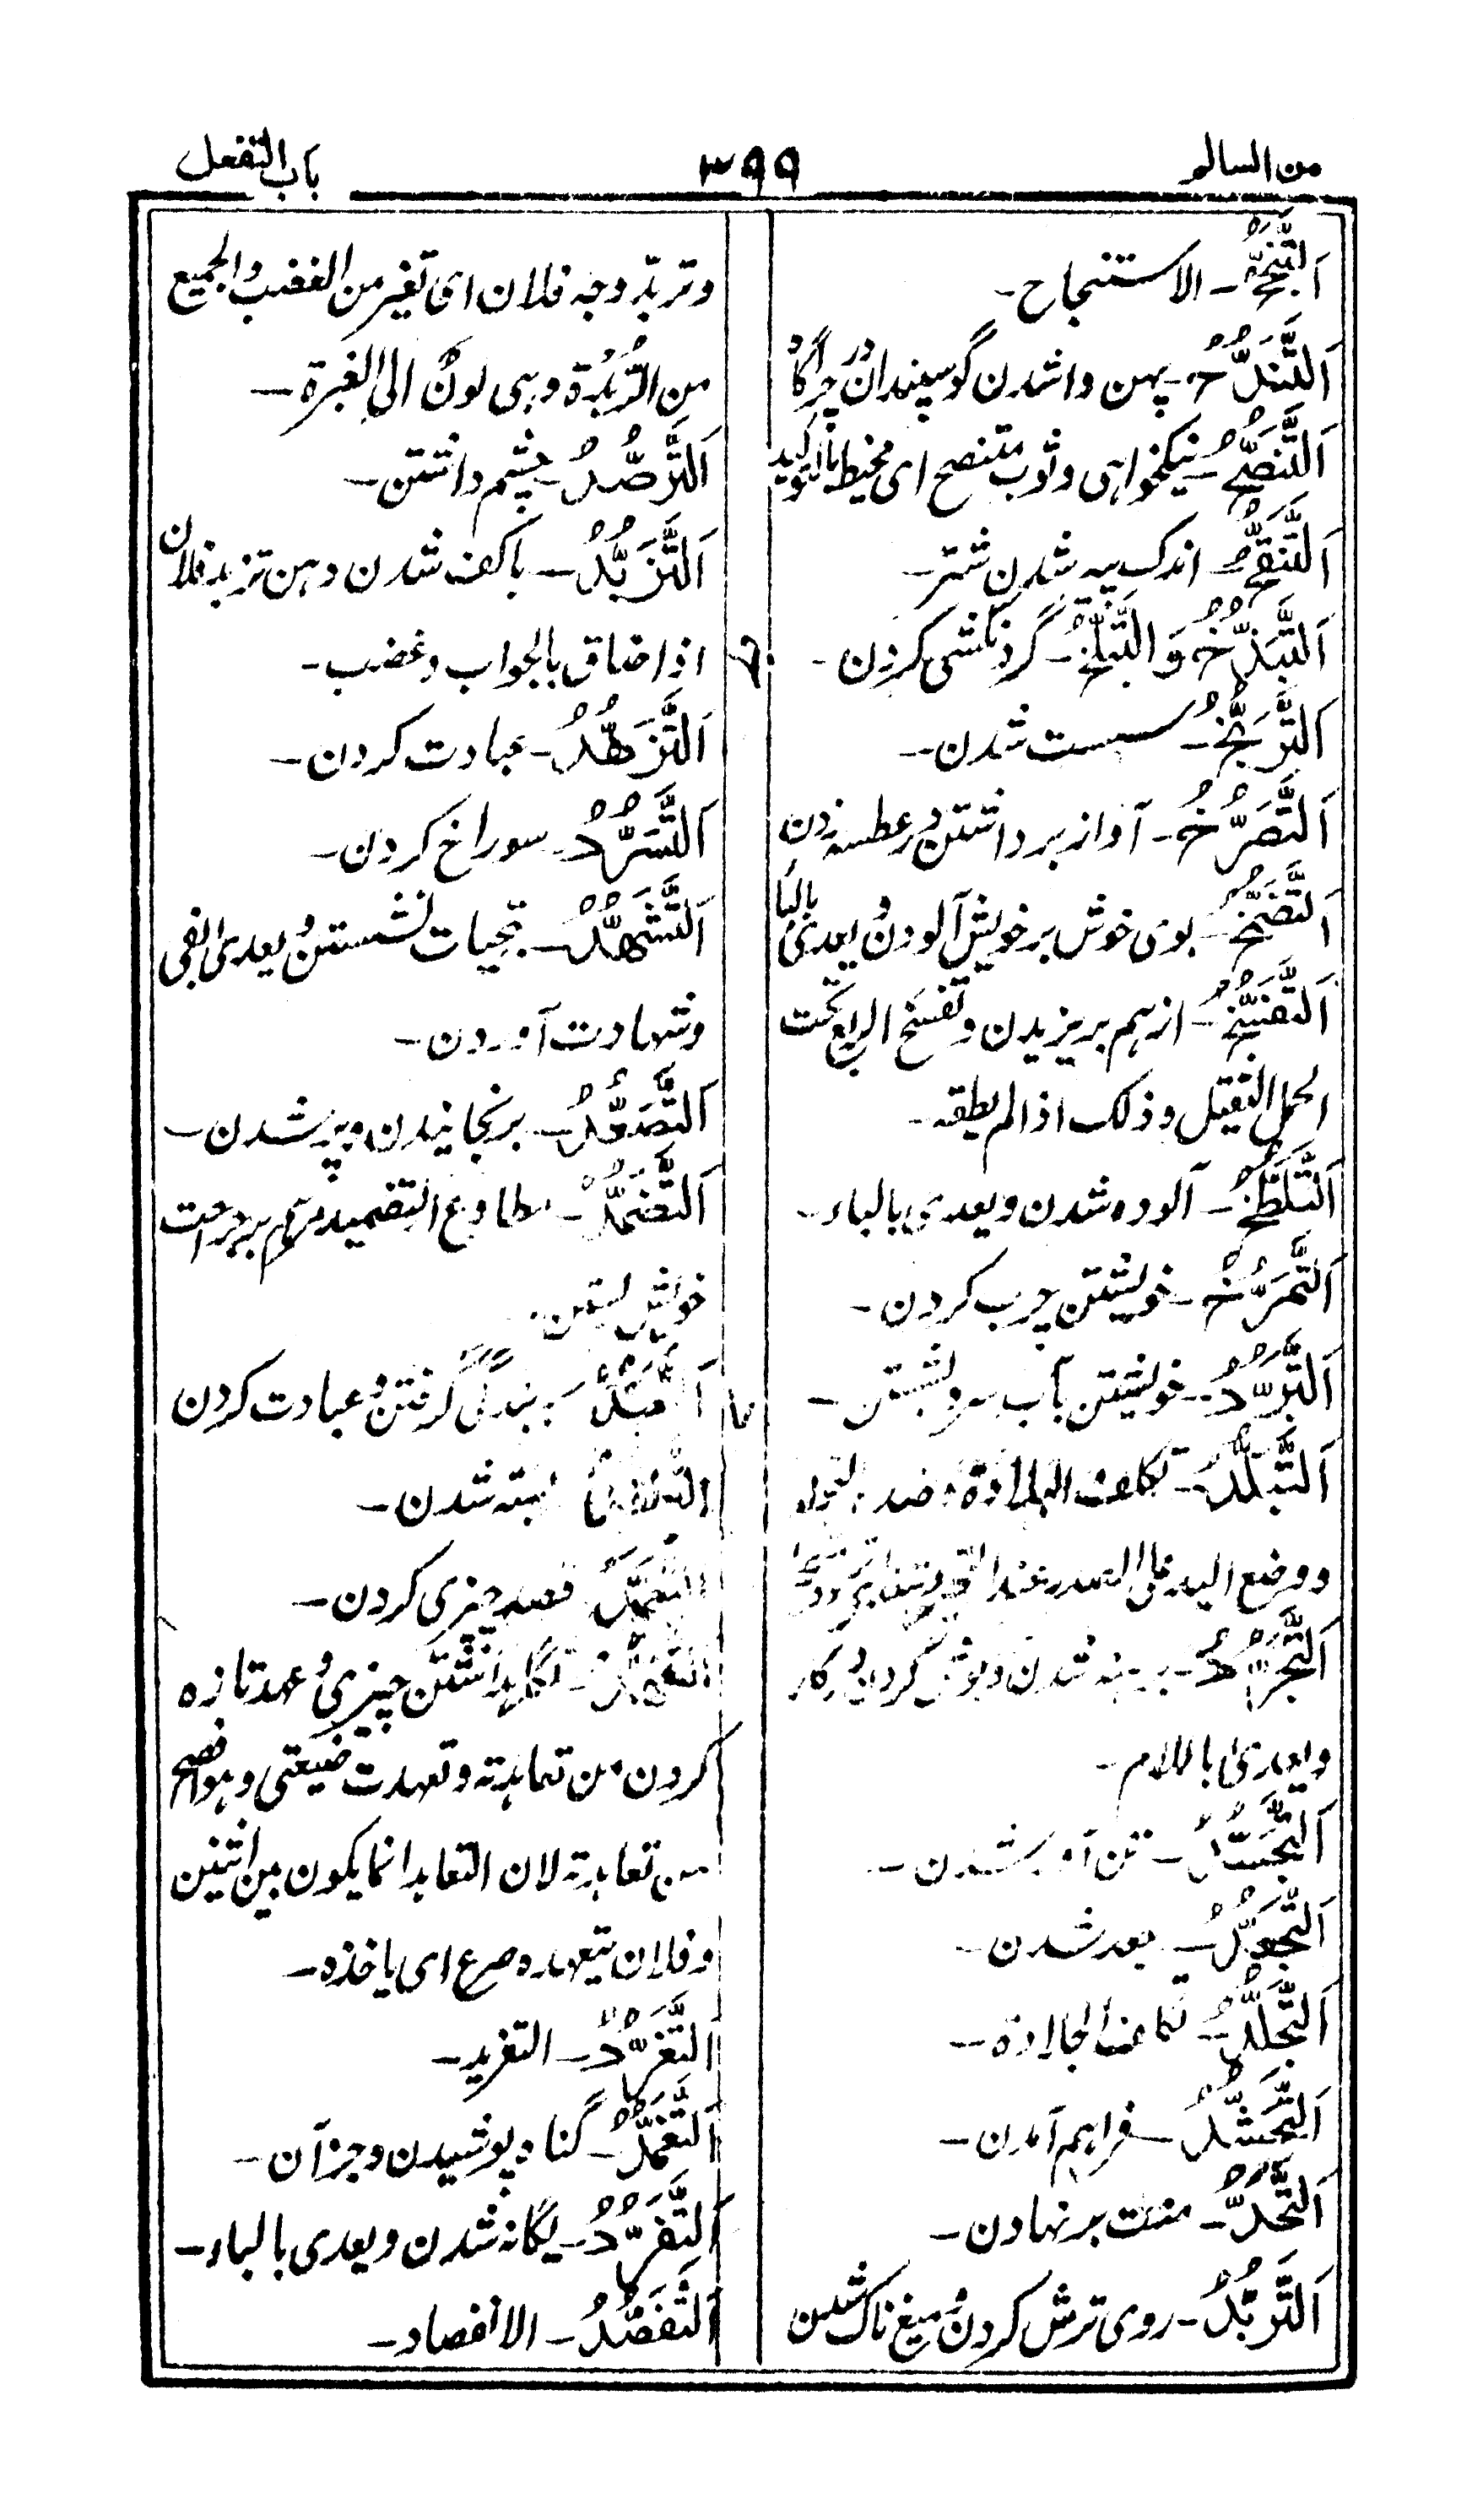 من السالم
۳۹۹
باب التفعل
اَلتَّنَجُّحُ۔ الاستنجاح۔
اَلتَّنَدُّحُ۔ پہن واشدن گوسپندان در چراگاہ
اَلتَّنَصُّحُ۔ نیکخواہی وثوب متنصح ای مخیط بالتوکید
اَلتَّنَقُّحُ۔ اندک پیہ شدن شتر۔
اَلتَّبَذُّخُ وَ التَّبَلُّخُ۔ گردنکشی کردن۔
اَلتَّرَبُّخُ۔ سست شدن۔
اَلتَّصَرُّخُ۔ آواز برداشتن در عطسہ زدن
اَلتَّضَمُّخُ۔ بوی خوش بر خویش آلودن ویعدی بالباء
اَلتَّفَسُّخُ۔ از ہم بریزیدن وتفسخ الربع تحت
الحمل الثقیل وذلک اذا لم یطقہ۔
اَلتَّلَطُّخُ۔ آلودہ شدن ویعدی بالباء۔
اَلتَّمَرُّخُ۔ خویشتن چرب کردن۔
اَلتَّبَرُّدُ۔ خویشتن بآب سرد شستن۔
اَلتَّبَلُّدُ۔ تکلف البلادۃ وضد التجلد
ووضع الید علی الصدر عند
اَلتَّجَرُّدُ۔ برہنہ شدن وکوشش کردن در کار
ویعدی باللام۔
اَلتَّجَسُّدُ۔ تن آور شدن۔
اَلتَّجَعُّدُ۔ جعد شدن۔
اَلتَّجَلُّدُ۔ تکلف الجلادۃ۔
اَلتَّحَشُّدُ۔ فراہم آمدن۔
اَلتَّحَمُّدُ۔ منت برنہادن۔
اَلتَّرَبُّدُ۔ روی ترش کردن ومیغ ناک شدن
وتربّد وجہ فلان ای تغیر من الغضب والجمیع
من الرُّبْدَۃ وہی لون الی الغبرۃ۔
اَلتَّرَصُّدُ۔ چشم داشتن۔
اَلتَّزَبُّدُ۔ باکف شدن دہن تزبد فلان
اذا ضاق بالجواب وغضب۔
اَلتَّزَهُّدُ۔ عبادت کردن۔
اَلتَّسَرُّدُ۔ سوراخ کردن۔
اَلتَّشَهُّدُ۔ تحیات نشستن ویعدی بفی
وشہادت آوردن۔
اَلتَّصَعُّدُ۔ برنجانیدن وبر شدن۔
اَلتَّضَمُّدُ۔ مطاوع التضمید مرہم بر جراحت
خویش بستن۔
اَلتَّعَبُّدُ۔ بندگی گرفتن وعبادت کردن
اَلتَّعَقُّدُ۔ بستہ شدن۔
اَلتَّعَمُّدُ۔ قصد چیزی کردن۔
اَلتَّعَهُّدُ۔ نگاہداشتن چیزی وعہد تازہ
کردن من تعاہدتہ وتعہدت ضیعتی وہو افصح
من تعاہدتہ لان التعاہد انما یکون بین اثنین
وفلان یتعہدہ صرع ای یاخذہ۔
اَلتَّغَرُّدُ۔ التغرید۔
اَلتَّغَمُّدُ۔ گناہ پوشیدن وجز آن۔
اَلتَّفَرُّدُ۔ یگانہ شدن ویعدی بالباء۔
اَلتَّفَصُّدُ۔ الانفصاد۔